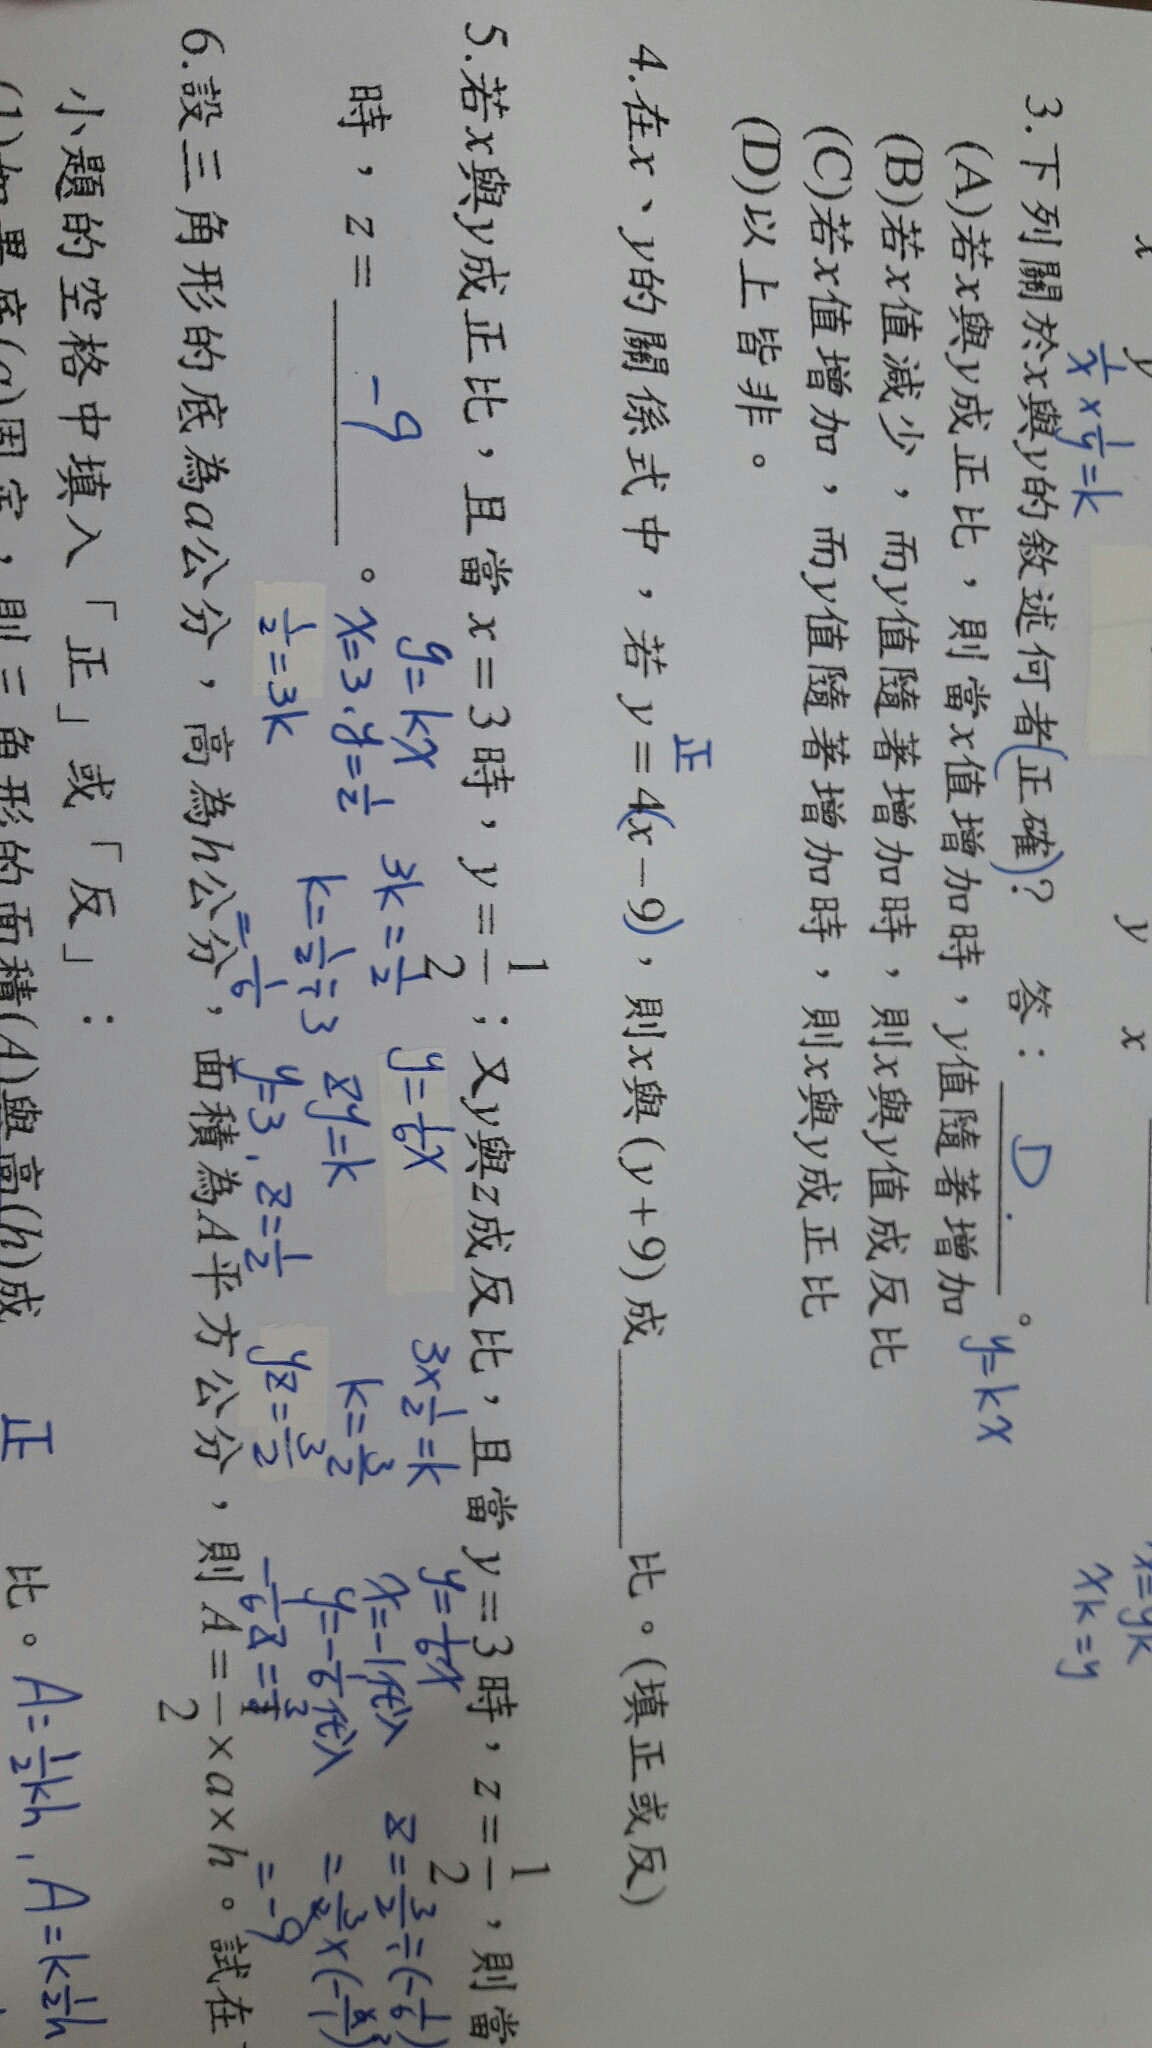 x y y x
1/x × 1/y = k x=yk
xk=y
3.下列關於x與y的敘述何者(正確)? 答: D 。
(A)若x與y成正比,則當x值增加時,y值隨著增加 y=kx
(B)若x值減少,而y值隨著增加時,則x與y值成反比
(C)若x值增加,而y值隨著增加時,則x與y成正比
(D)以上皆非。
正
4.在x、y的關係式中,若y=4(x-9),則x與(y+9)成______比。(填正或反)
5.若x與y成正比,且當x=3時,y=1/2;又y與z成反比,且當y=3時,z=1/2,則當
時,z= -9 。
y=kx 3k=1/2 y=1/6x 3×1/2=k y=1/6x z=3/2÷(-1/6)
x=3,y=1/2 k=1/2÷3 zy=k k=3/2 x=-1代入 =3/2×(-6/1)
1/2=3k =1/6 y=3,z=1/2 yz=3/2 y=-1/6代入 =-9
-1/6z=3/2
6.設三角形的底為a公分,高為h公分,面積為A平方公分,則A=1/2×a×h。試在
小題的空格中填入「正」或「反」:
(1)如果底(a)固定,則三角形的面積(A)與高(h)成 正 比。A=1/2kh,A=k1/2h